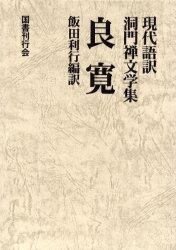 現代語訳
洞門禅文学集
良寛
飯田利行編訳
国書刊行会